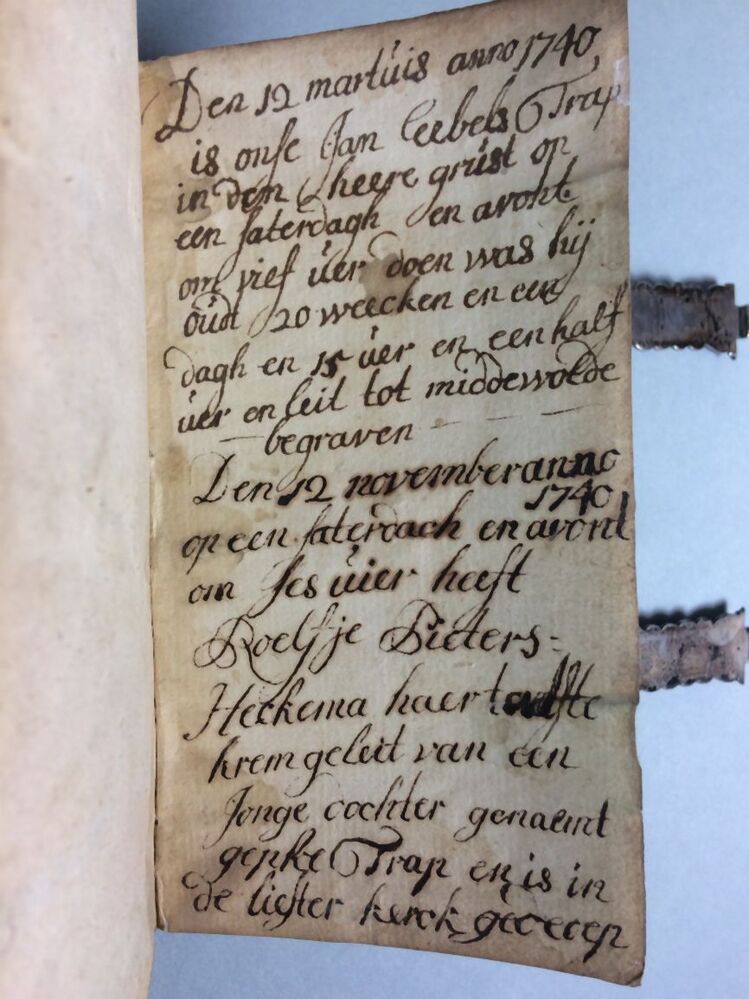 Den 12 martuis anno 1740,
is onse Jan Ceebels Trap
in dem heere grust op
een saterdagh en avont
om vief uer doen was hij
oudt 20 weecken en een
dagh en 15 uer en een half
uer en leit tot middewolde
begraven
Den 12 november anno
1740
op een saterdach en avont
om ses uier heeft
Roelfje Pieters=
Heckema haer
krem geleit van een
Jonge dochter genaemt
gepke Trap en is in
de liefter kerck gedeeep